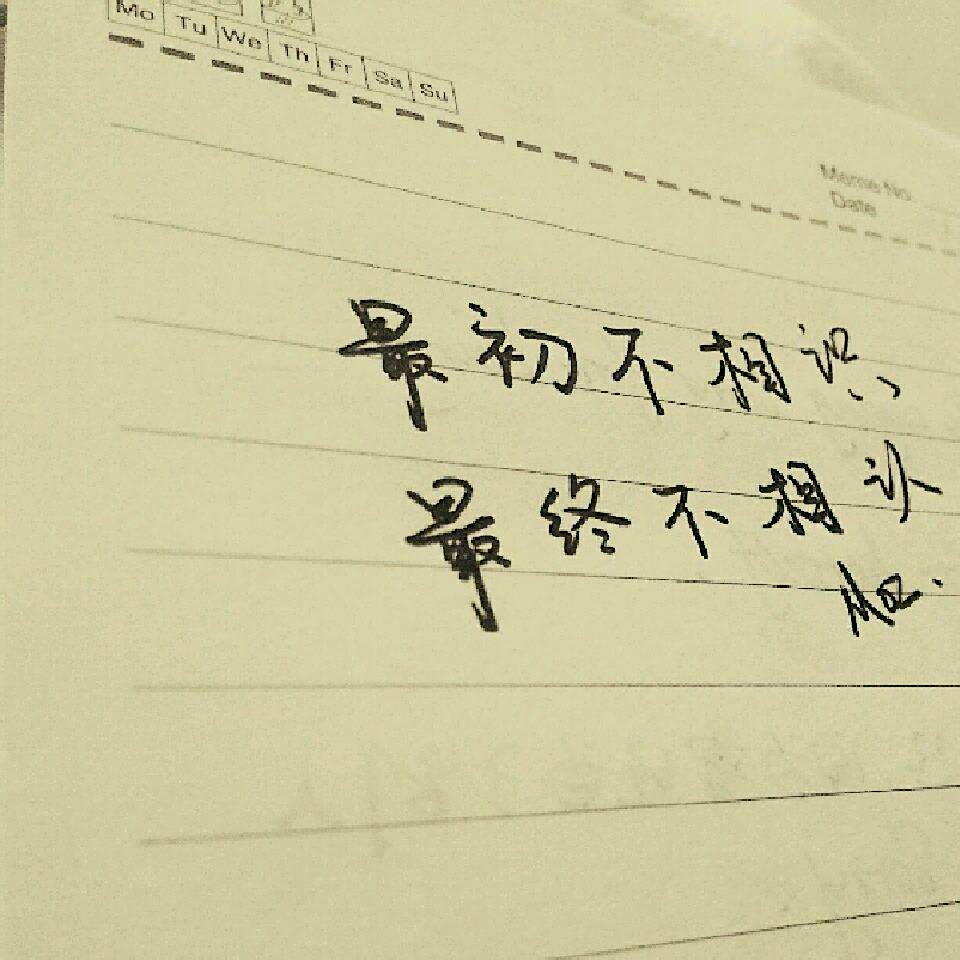 Mo Tu We Th Fr Sa Su
Memo No.
Date
最初不相识
最终不相认